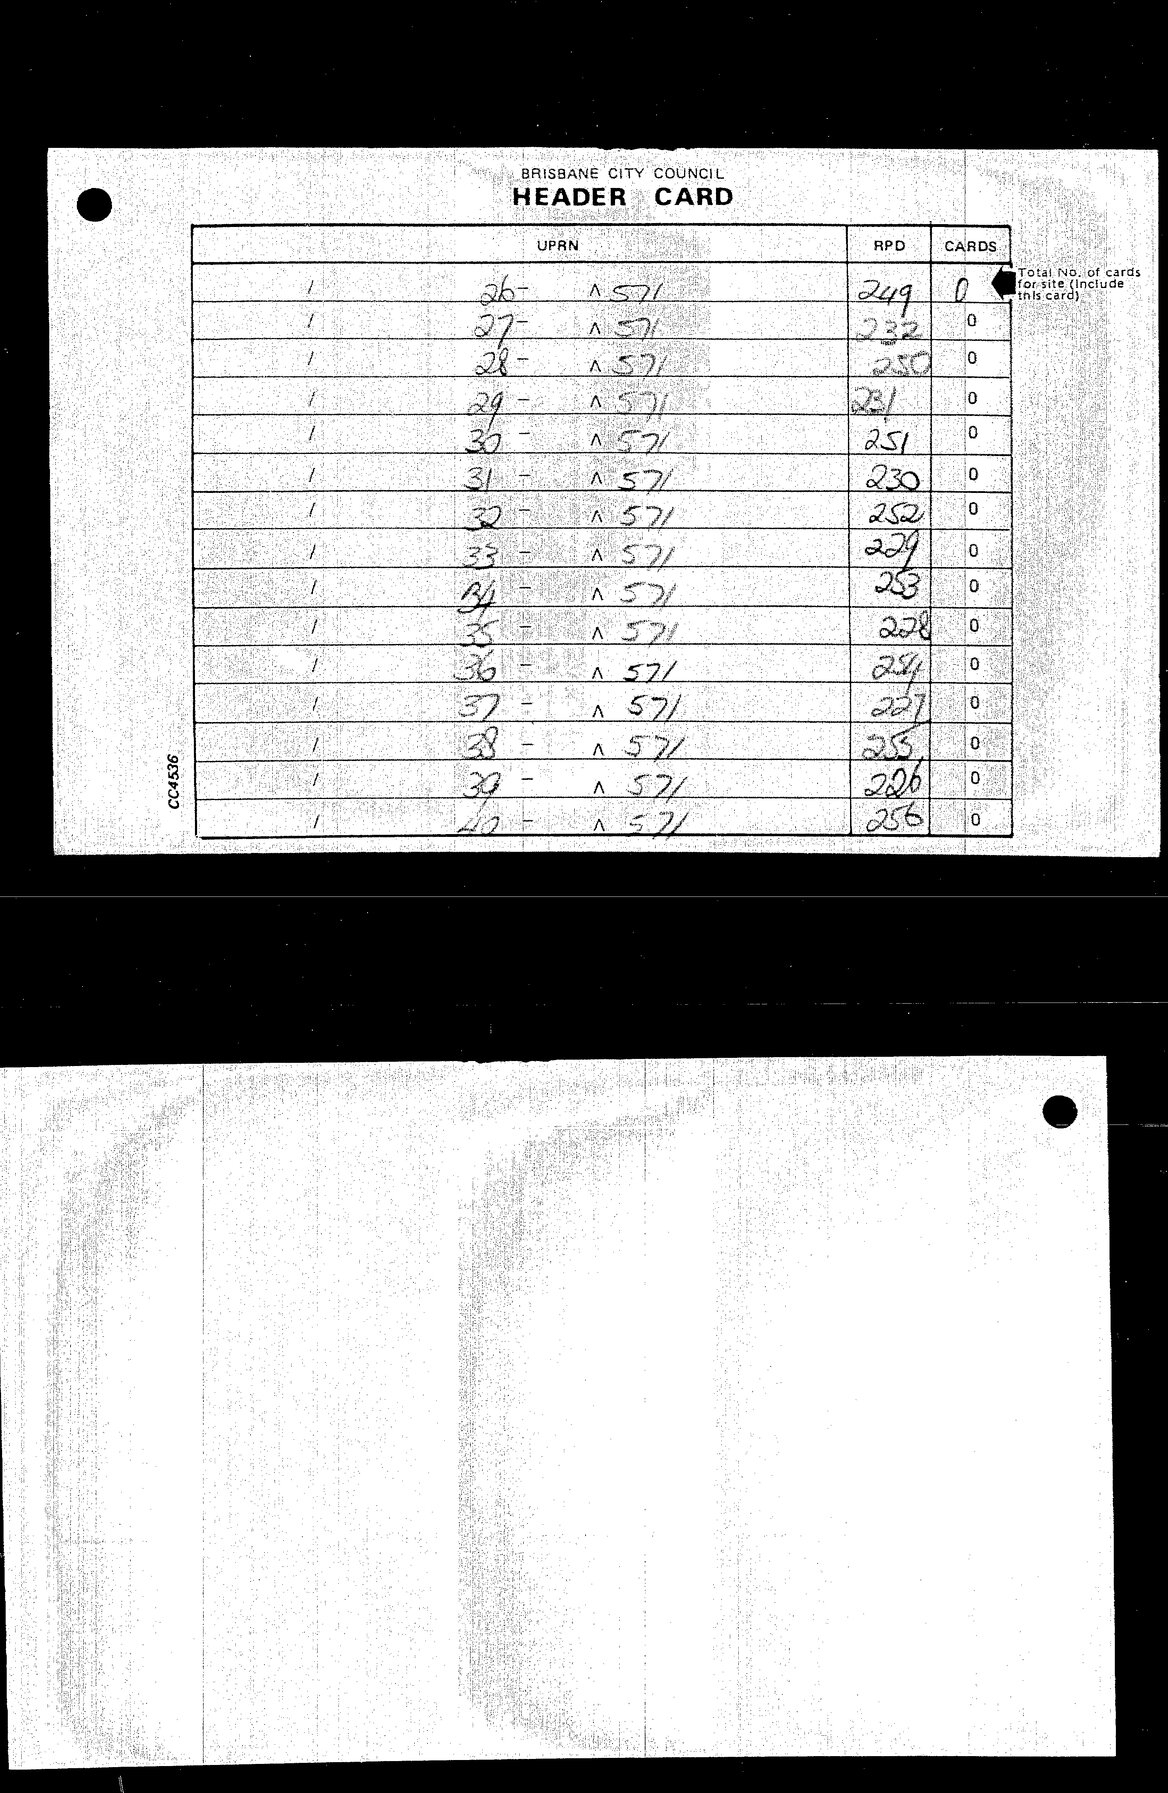 BRISBANE CITY COUNCIL
HEADER CARD
UPRN RPD CARDS
/ 26- ^ 571 249 0
Total No. of cards
for site (Include
this card)
/ 27- ^ 571 232 0
/ 28- ^ 571 250 0
/ 29- ^ 571 231 0
/ 30 - ^ 571 251 0
/ 31 - ^ 571 230 0
/ 32 - ^ 571 252 0
/ 33 - ^ 571 229 0
/ 34 - ^ 571 253 0
/ 35 - ^ 571 228 0
/ 36 - ^ 571 254 0
/ 37 - ^ 571 227 0
/ 38 - ^ 571 255 0
/ 39 - ^ 571 226 0
/ 40 - ^ 571 256 0
CC4536